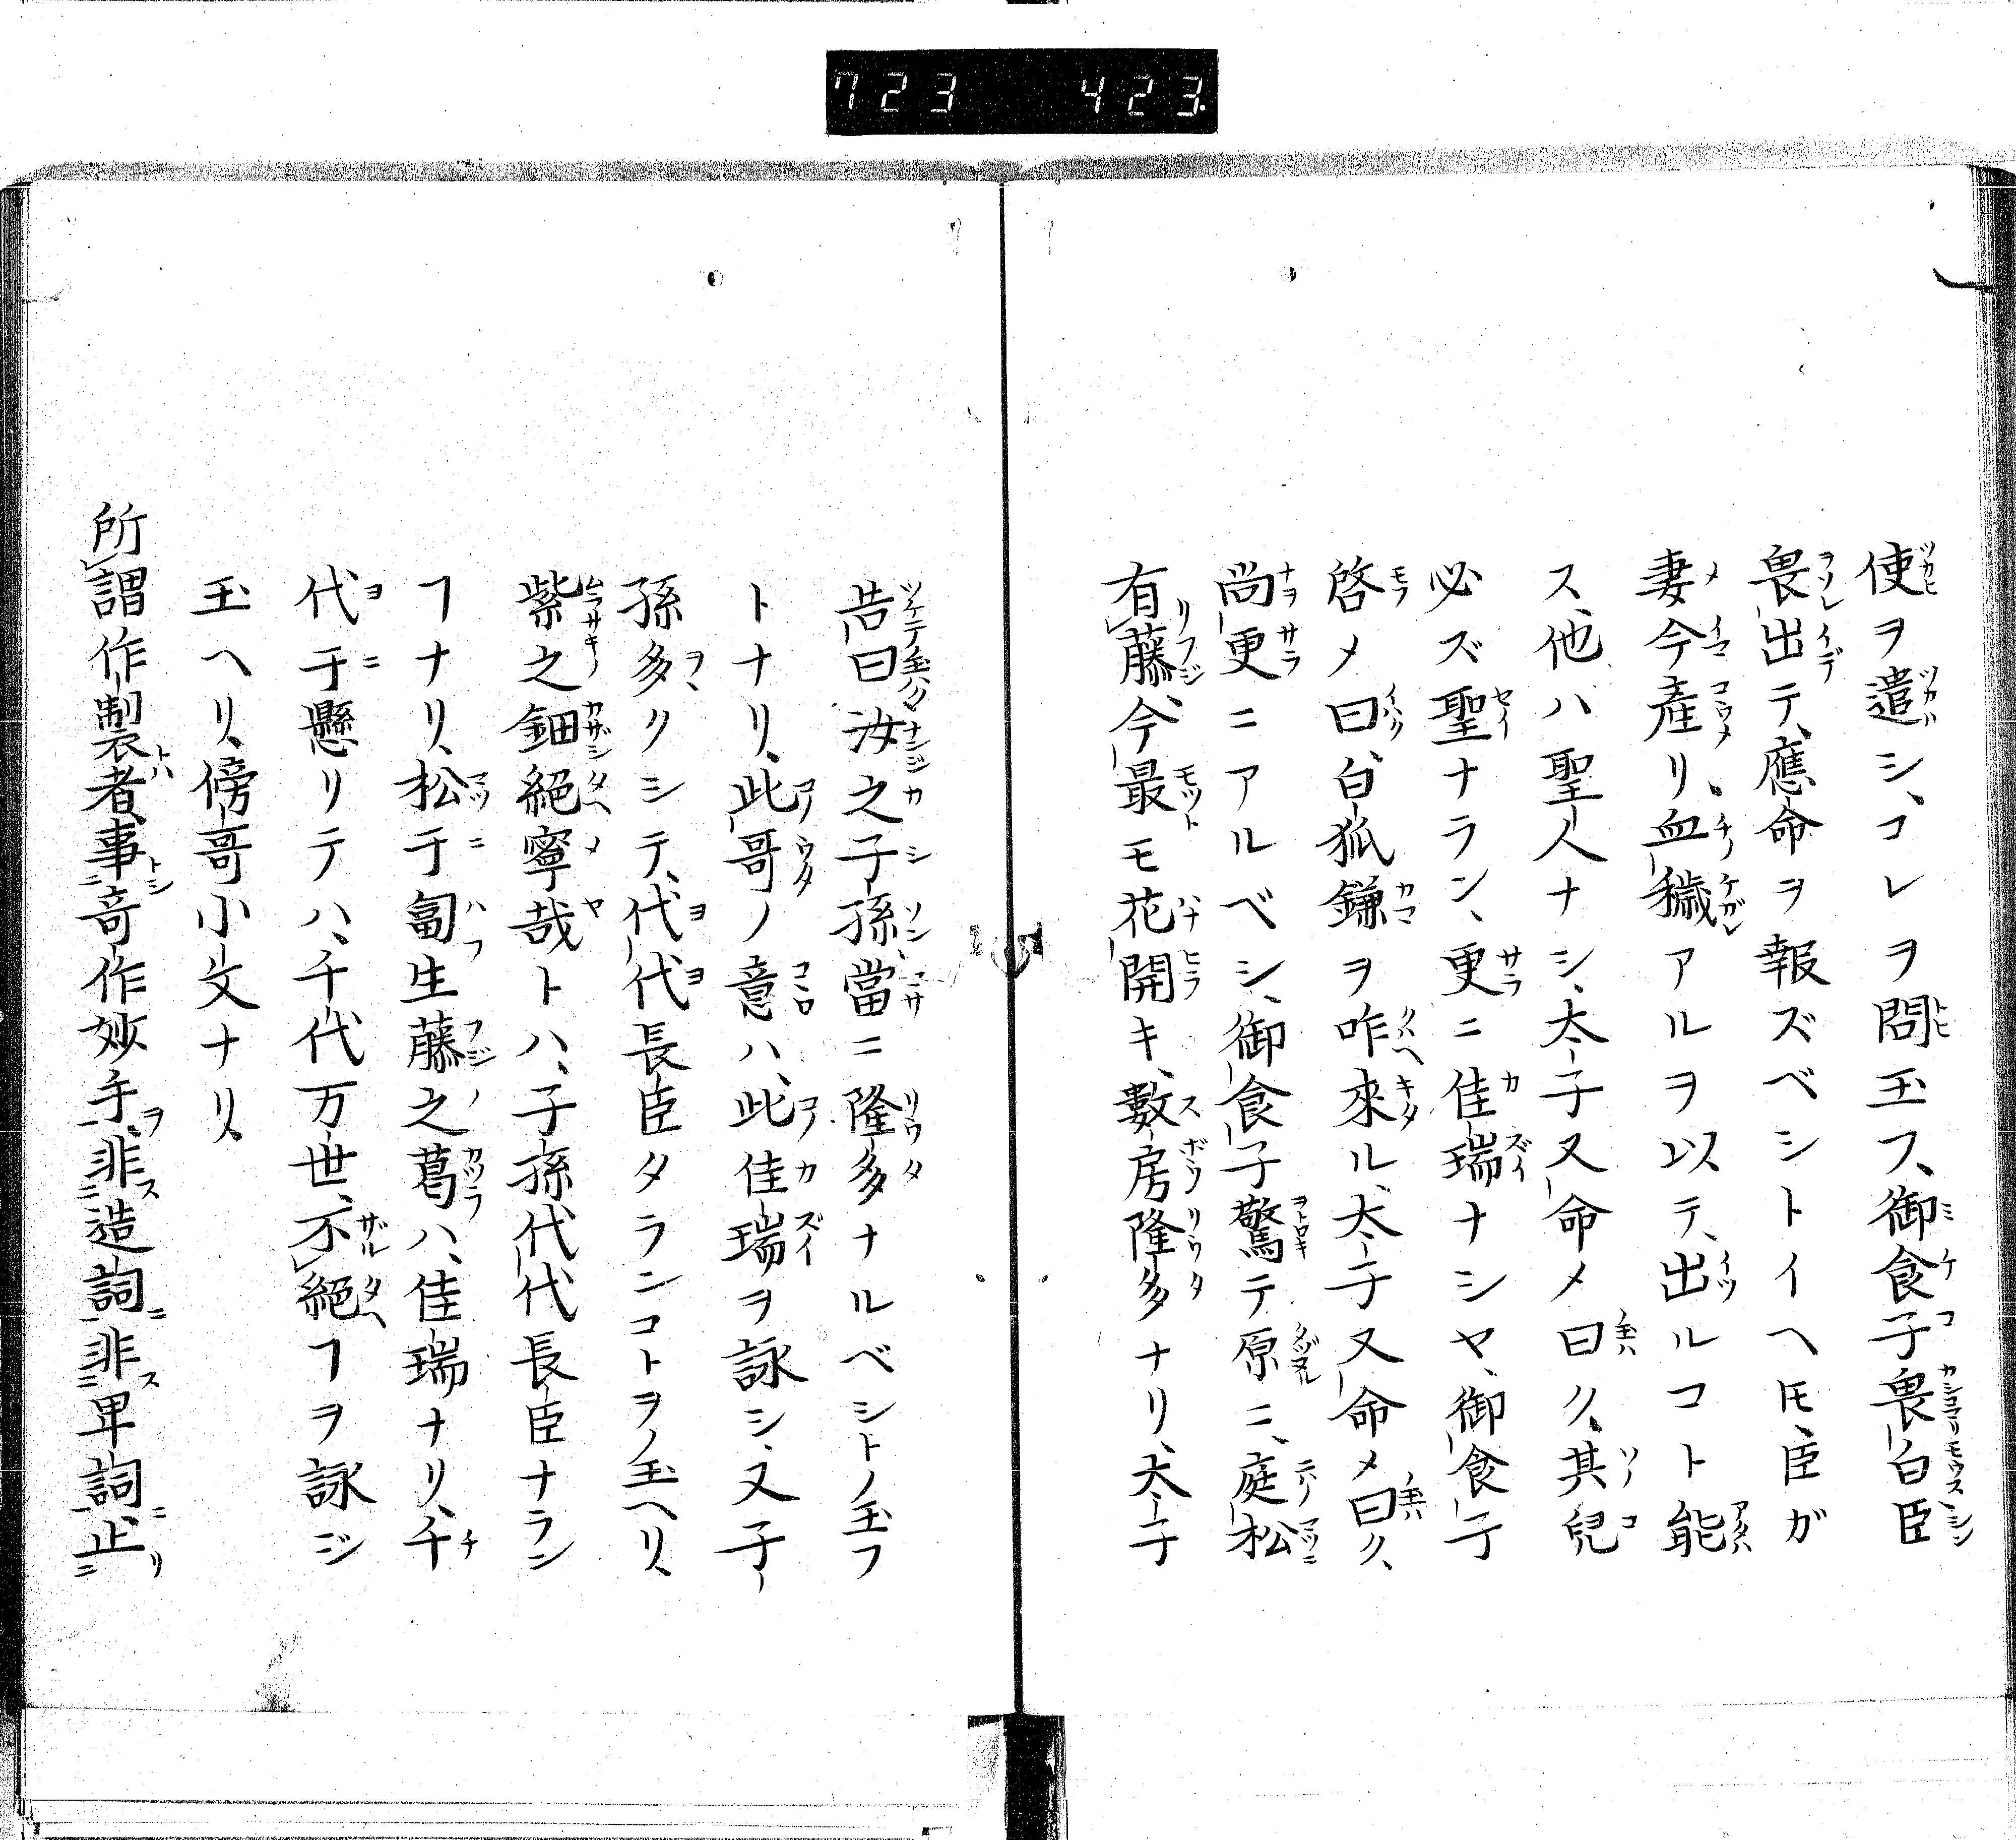 723 423
使ヲ遣シ、コレヲ問玉フ、御食子畏白臣
畏出テ、應命ヲ報ズベシトイヘ𪜈、臣ガ
妻今產リ、血穢アルヲ以テ、出ルコト能
ス、他ハ聖人ナシ、太子又命メ曰ク、其兒
必ズ聖ナラン、更ニ佳瑞ナシヤ、御食子
啓メ曰、白狐鎌ヲ咋來ル、太子又命メ曰ク、
尚更ニアルベシ、御食子驚テ原ニ、庭松
有藤、今最モ花開キ、數房隆多ナリ、太子
告曰汝之子孫、當ニ隆多ナルベシトノ玉フ
トナリ、此哥ノ意ハ、此佳瑞ヲ詠シ、又子
孫多クシテ、代代長臣タランコトヲノ玉ヘリ、
紫之鈿絕寧哉トハ、子孫代代長臣ナラン
ヿナリ、松于匐生藤之葛ハ、佳瑞ナリ、千
代于懸リテハ、千代万世、不絕ヿヲ詠ジ
玉ヘリ、傍哥小文ナリ、
所謂作製者、事奇作妙手、非造詞非卑詞、止